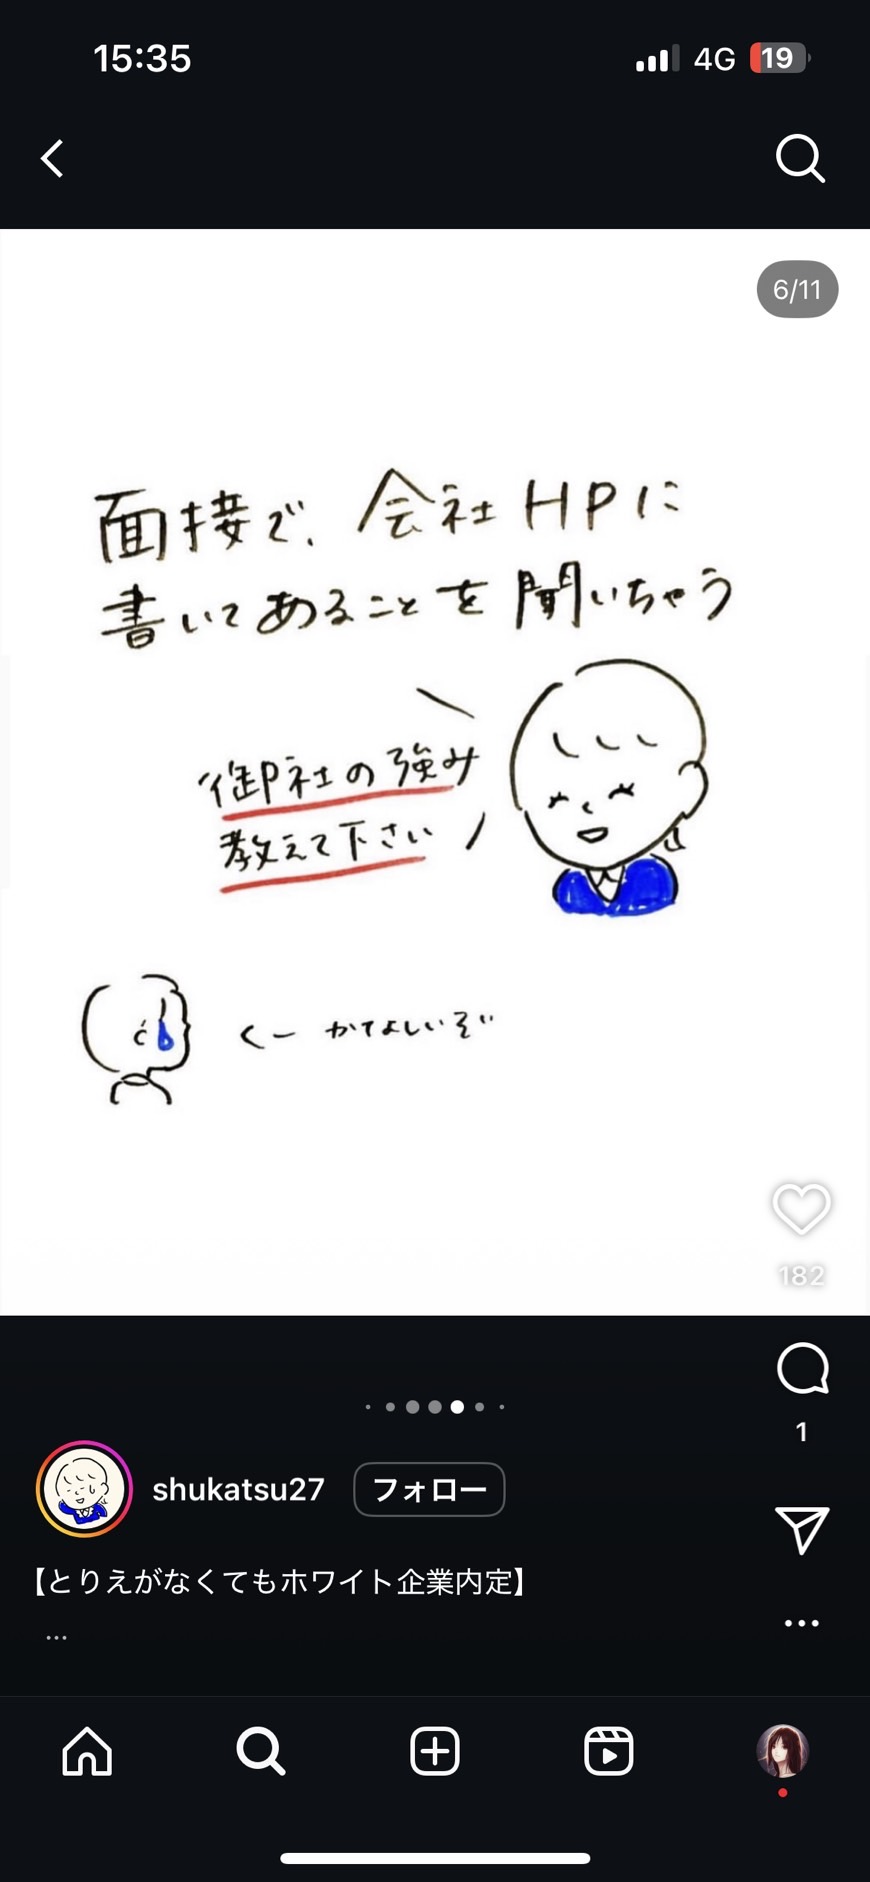 15:35
4G
19
6/11
面接で、会社HPに
書いてあることを聞いちゃう
御社の強み
教えて下さい
182
1
shukatsu27
フォロー
【とりえがなくてもホワイト企業内定】
...